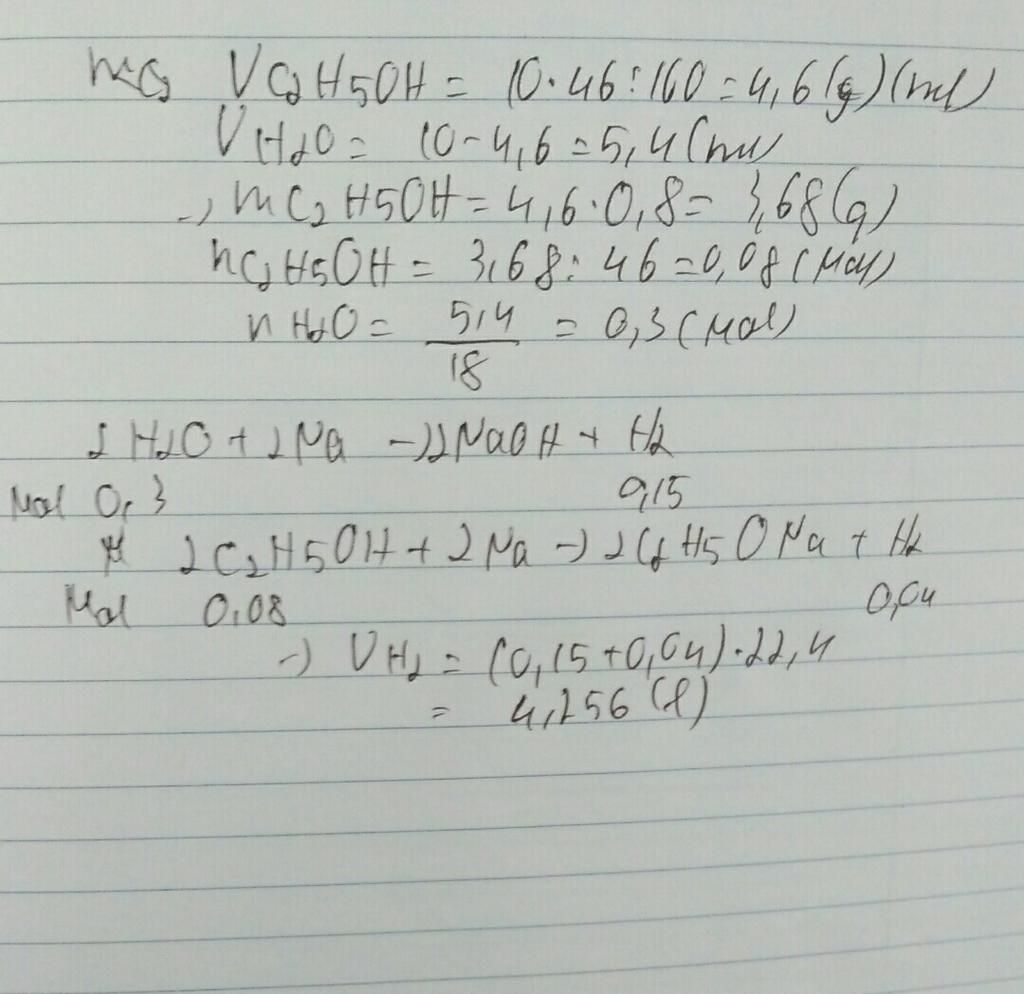 VC2H5OH = 10.46:100 = 4,6 (g) (ml)
VH2O = 10-4,6 = 5,4 (ml)
-) mC2H5OH = 4,6.0,8 = 3,68 (g)
nC2H5OH = 3,68 : 46 = 0,08 (Mol)
nH2O = 5,4/18 = 0,3 (Mol)
2H2O + 2Na -) 2NaOH + H2
Mol 0,3 0,15
2C2H5OH + 2Na -) 2C2H5ONa + H2
Mol 0,08 0,04
-) VH2 = (0,15+0,04).22,4
= 4,256 (l)